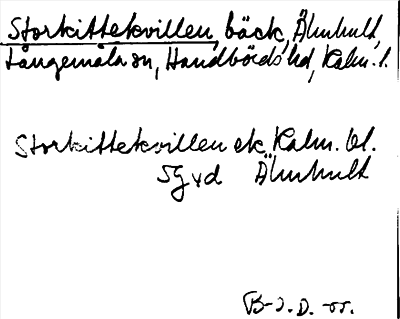 Storkittekvillen, bäck, Älmhult,
Långemåla sn, Handbörds hd, Kalm. l.
Storkittekvillen ek. Kalm. bl.
5g vd Älmhult